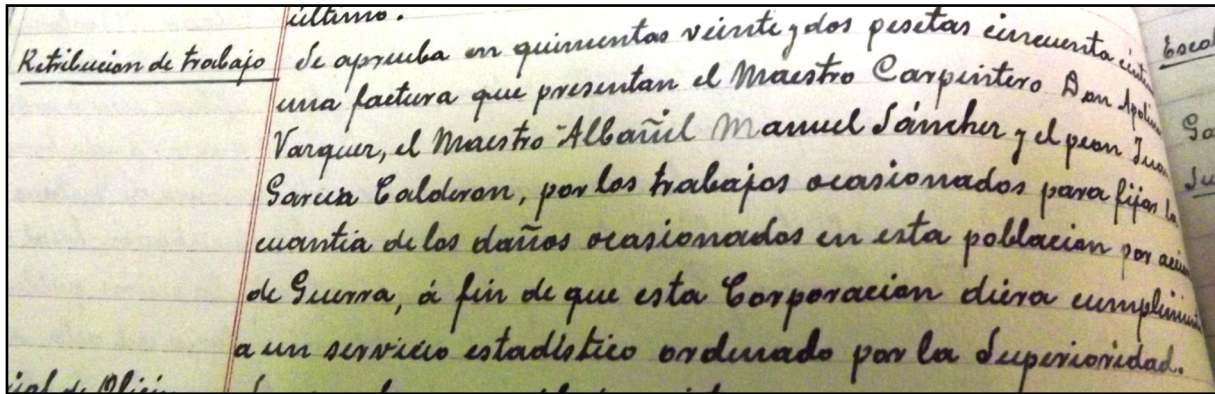 último.
Retribucion de trabajo
Se aprueba en quinientas veinte y dos pesetas cincuenta
una factura que presentan el Maestro Carpintero Don
Varquer, el Maestro Albañil Manuel Sáncher y el peon Juan
Garcia Calderon, por los trabajos ocasionados para fijar la
cuantia de los daños ocasionados en esta poblacion por
de Guerra, á fin de que esta Corporacion diera
a un servicio estadistico ordenado por la Superioridad.